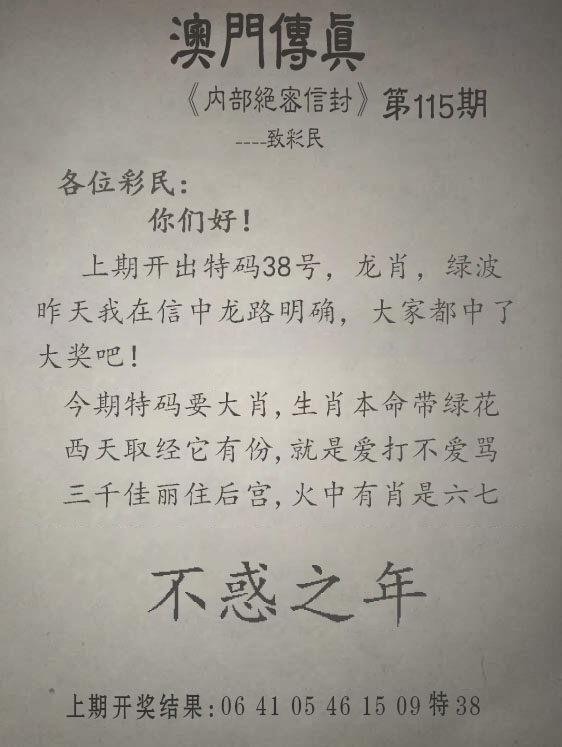 澳門傳眞
《内部絕密信封》第115期
----致彩民
各位彩民:
你们好!
上期开出特码38号，龙肖，绿波
昨天我在信中龙路明确，大家都中了
大奖吧!
今期特码要大肖,生肖本命带绿花
西天取经它有份,就是爱打不爱骂
三千佳丽住后宫,火中有肖是六七
不惑之年
上期开奖结果:06 41 05 46 15 09 特38